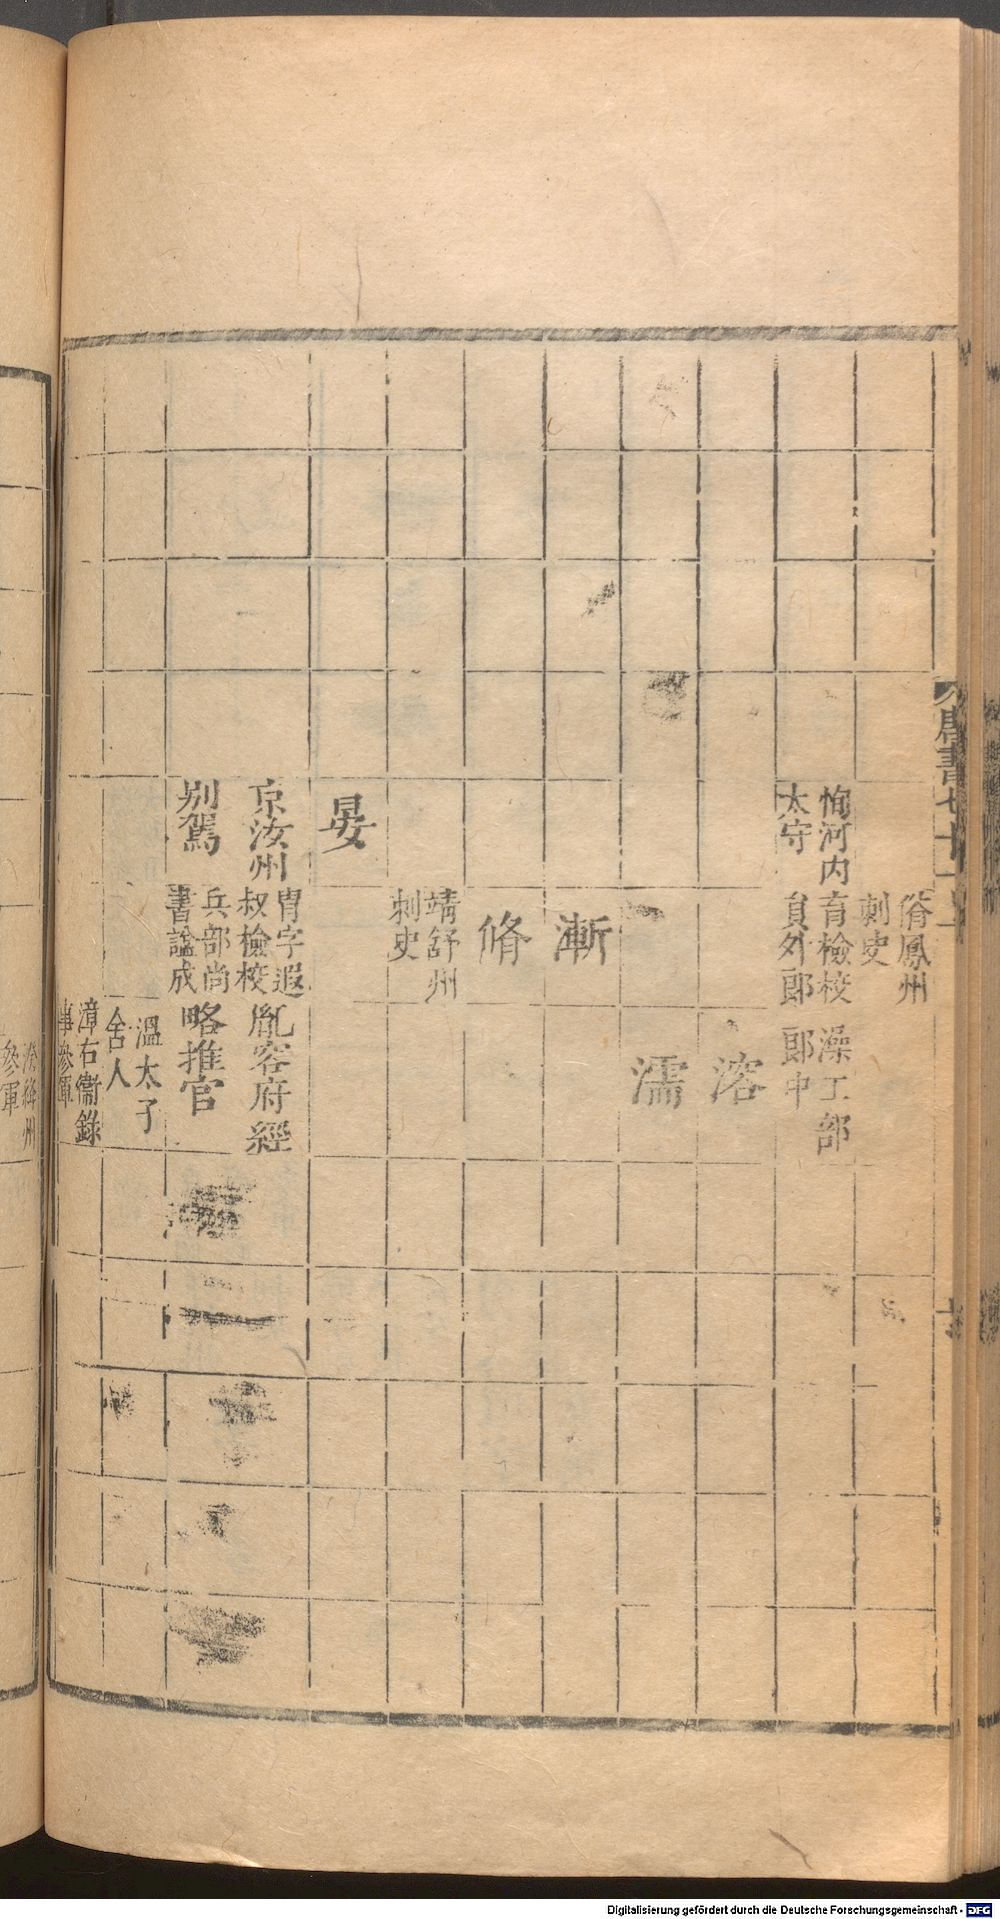 唐書七十
脩鳳州
刺史
恂河内
太守
育檢校
員外郎
澡工部
郎中
溶
濡
漸
脩
靖舒州
刺史
晏
京汝州
别駕
胄字遐
叔檢校
兵部尚
書謚成
胤容府經
略推官
溫太子
舍人
漳右衞錄
事參軍
絳州
參軍
Digitalisierung gefördert durch die Deutsche Forschungsgemeinschaft - DFG